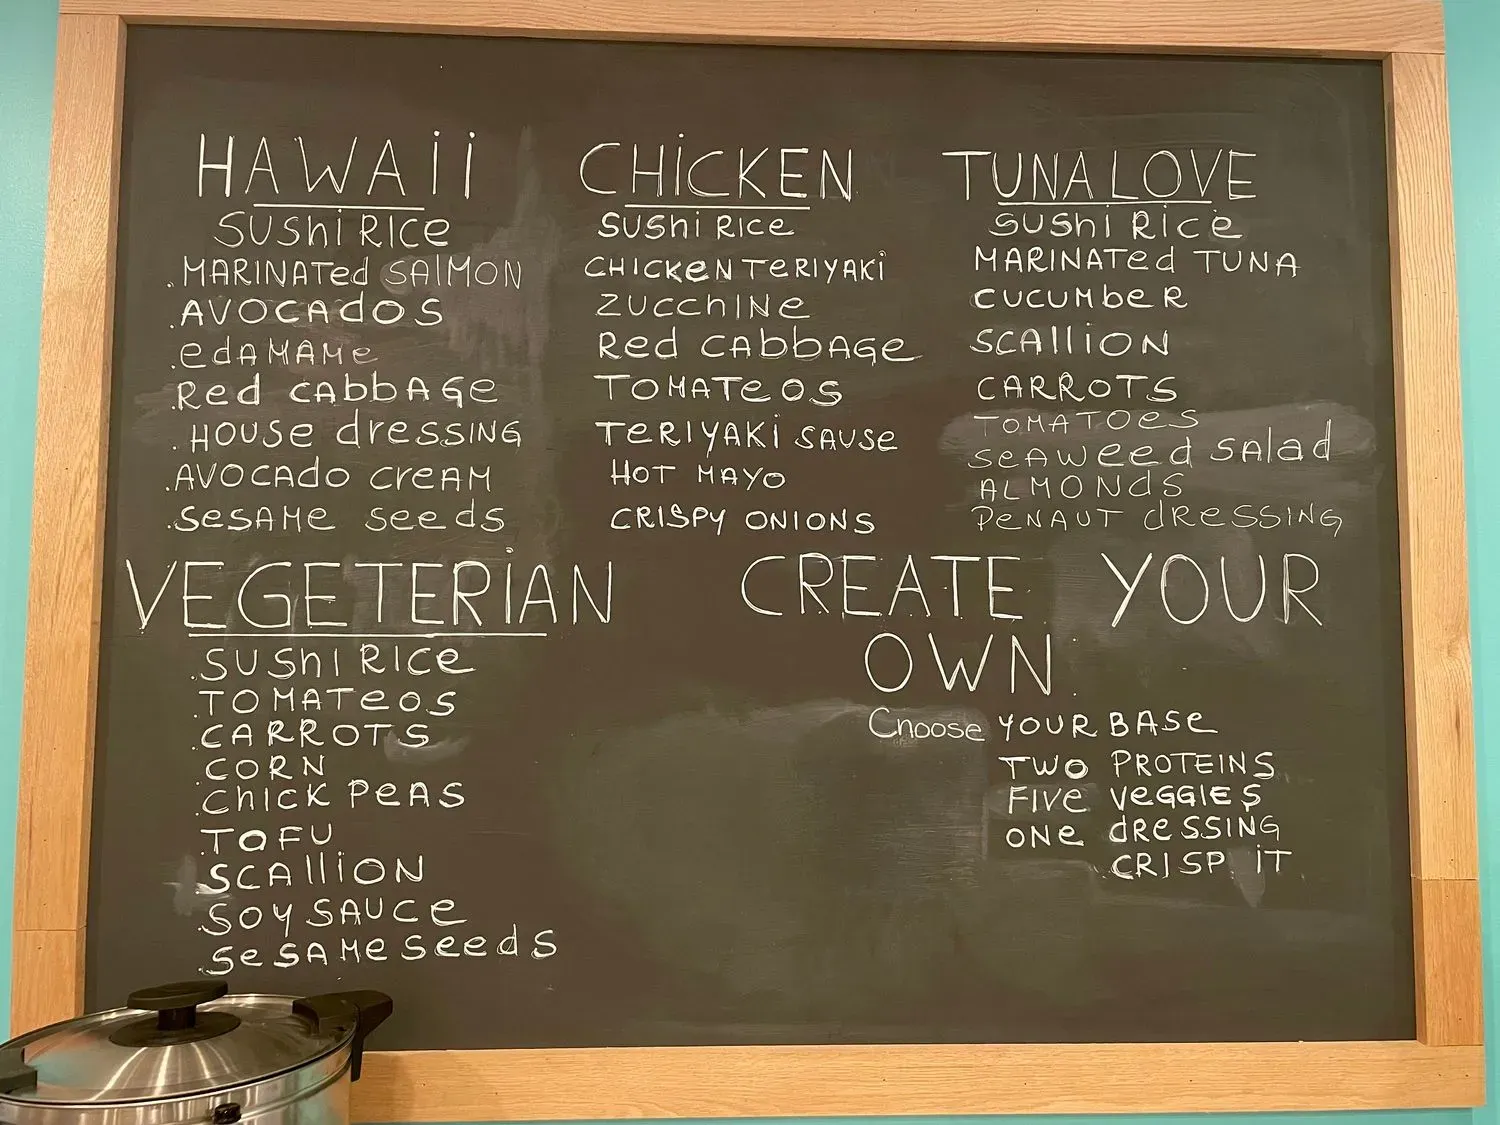 HAWAii
SUShi RICe
.MARINATed SAlMON
.AVOCAdOS
.edAMAMe
.Red cAbbAGe
.HOUSe dressING
.AVOCAdo creAM
.SeSAMe seeds
CHiCKEN
SUShi RICe
CHICKeN TeRIYAKi
ZUcchINe
Red cAbbAGe
TOMATeOS
TeRIYAKi SAUSe
HOT MAYO
CRISPY ONIONS
TUNA LOVE
SUShi Rice
MARINATed TUNA
CUCUMbeR
SCAlliON
CARROTS
TOMATOes
SeAWeed SAlad
ALMONdS
PeNAUT dReSSING
VEGETERiAN
.SUShI RICe
.TOMATeOS
.CARROTS
.CORN
.ChICK PeAS
.TOFU
.SCAlliON
.SOY SAUCe
.SeSAMe SeedS
CREATE YOUR
OWN
Choose YOUR BASe
TWO PROTEINS
FIVe VeGGIES
ONe dReSSING
CRISP iT